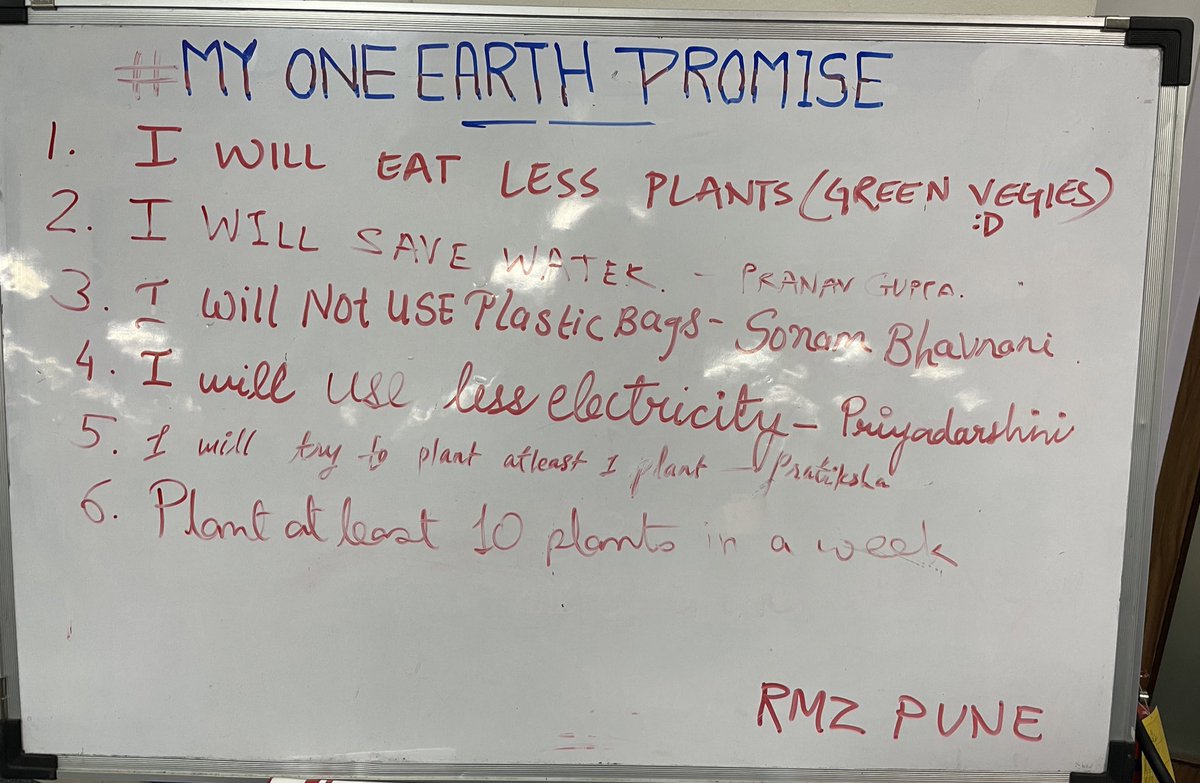 #MY ONE EARTH PROMISE
1. I WILL EAT LESS PLANTS (GREEN VEGIES)
:D
2. I WILL SAVE WATER. - PRANAV GUPTA.
3. I Will Not USE Plastic Bags - Sonam Bhavnani.
4. I will use less electricity - Priyadarshini
5. I will try to plant atleast 1 plant - Pratiksha
6. Plant at least 10 plants in a week
RMZ PUNE